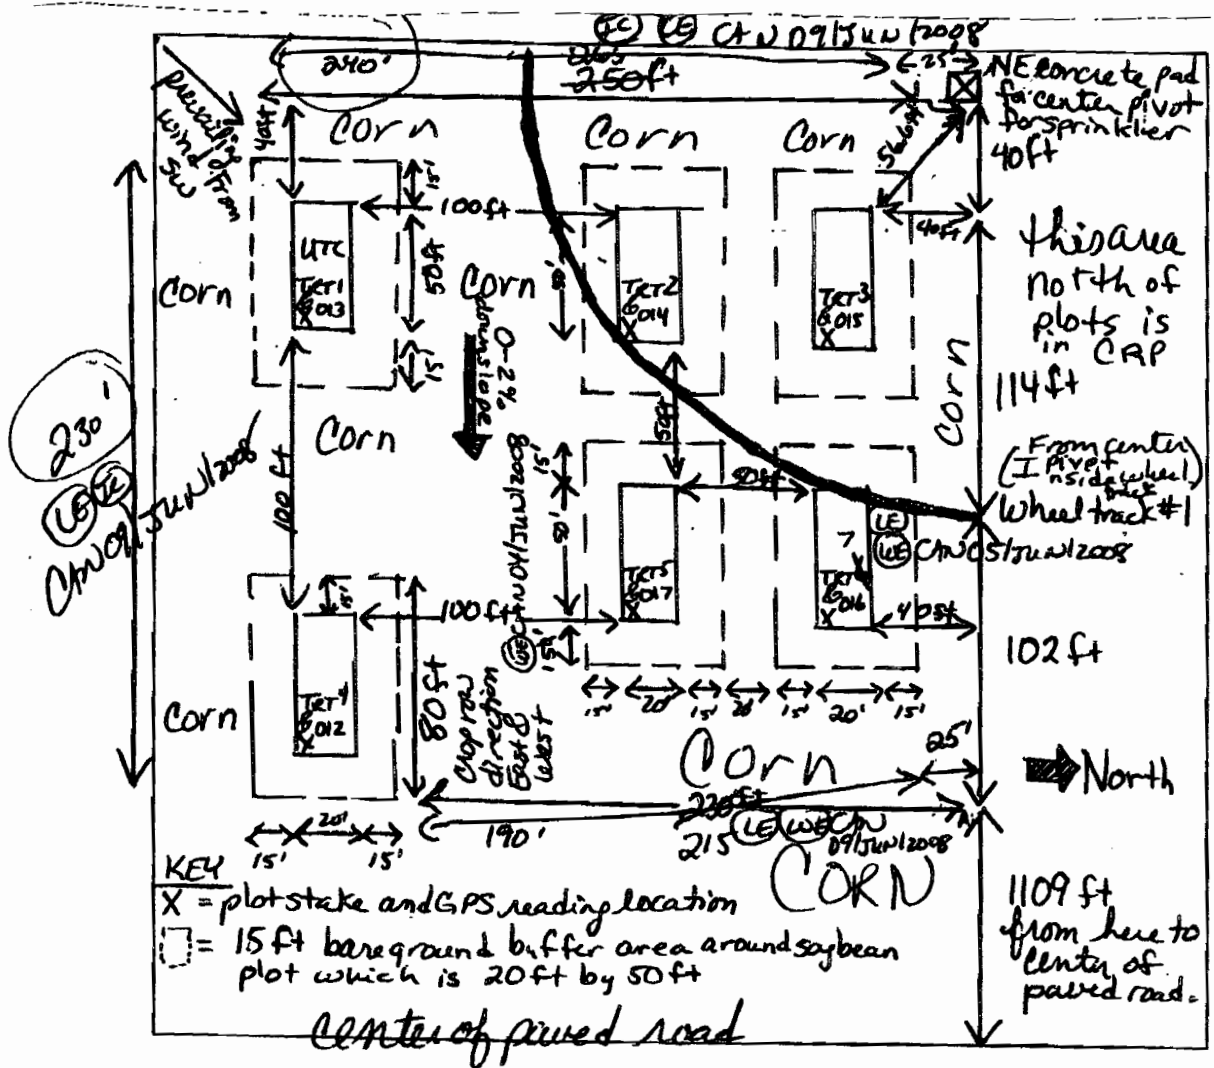 IC LE CAN 09/JUN/2008
240'
265
250ft
25'
NE concrete pad
for center pivot
for sprinklier
40ft
prevailing
wind from
SW
40ft
Corn
Corn
Corn
56.6ft
15'
100ft
40ft
this area
north of
plots is
in CRP
UTC
TRT1
013
50ft
Corn
50'
TRT2
014
TRT3
015
Corn
0-2%
downslope
15'
Corn
114ft
230'
LE IC
CAN 09/JUN/2008
100 ft
Corn
50ft
(From center
pivot
Inside wheel
track)
Wheel track #1
15'
50'
40ft
LE
WE CAN 05/JUN/2008
WE CAN 04/JUN/2008
TRT5
017
7
TRT
016
15'
100ft
15'
40ft
102 ft
Corn
TRT4
012
80ft
Crop row
direction
East &
West
15' 20' 15' 20' 15' 20' 15'
Corn
25'
North
230ft
190'
215 LE WE CAN
09/JUN/2008
15' 20' 15'
CORN
KEY
X = plot stake and GPS reading location
= 15 ft bareground buffer area around soybean
plot which is 20ft by 50ft
1109 ft
from here to
center of
paved road.
center of paved road